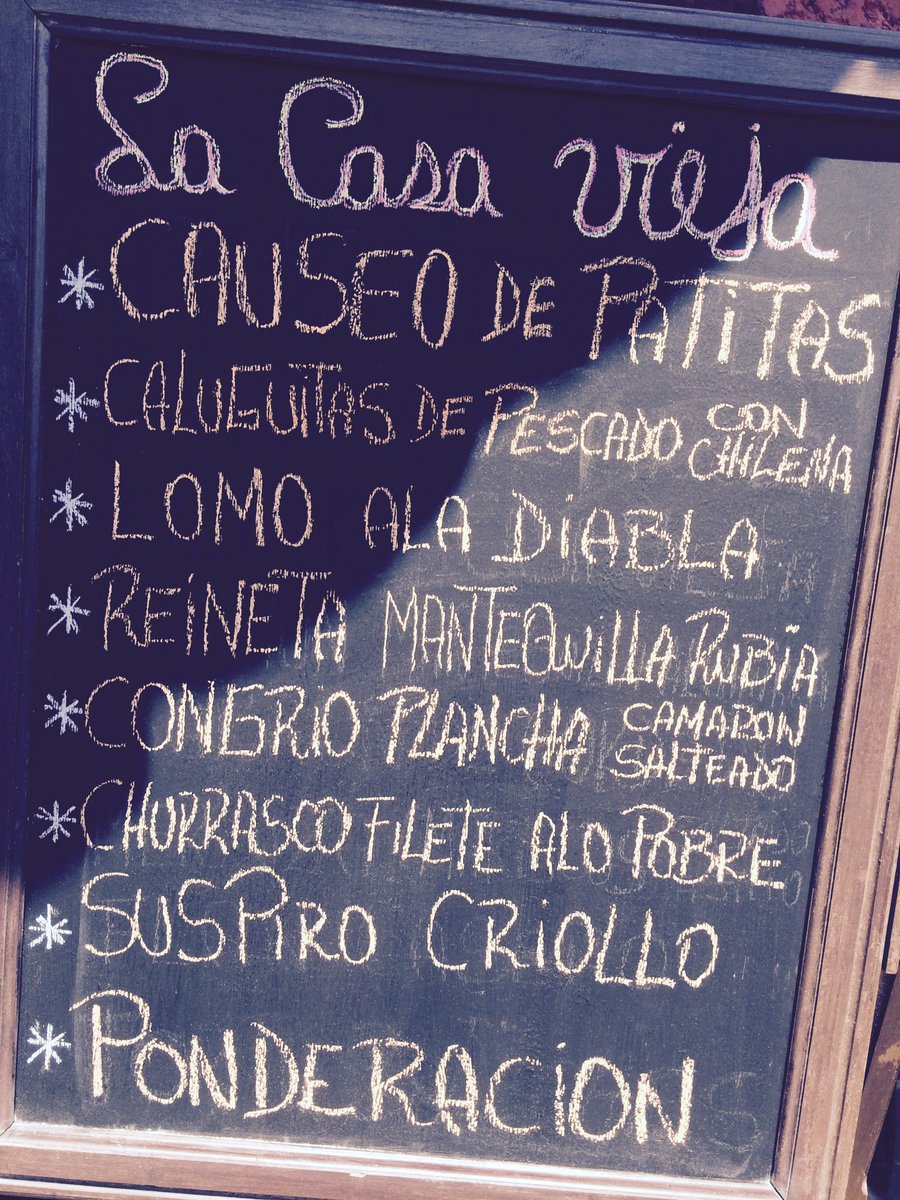 La Casa Vieja
* CAUSEO DE PATITAS
* CALUGUITAS DE PESCADO CON CHILENA
* LOMO ALA DIABLA
* REINETA MANTEQUILLA RUBIA
* CONGRIO PLANCHA CAMARON SALTEADO
* CHURRASCO FILETE ALO POBRE
* SUSPIRO CRIOLLO
* PONDERACION